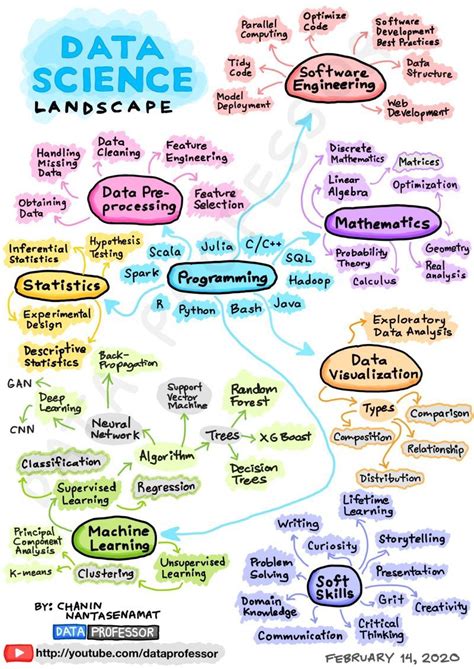 DATA
SCIENCE
LANDSCAPE
Parallel
Computing
Optimize
Code
Software
Development
Best Practices
Tidy
Code
Software
Engineering
Data
Structure
Model
Deployment
Web
Development
Handling
Missing
Data
Data
Cleaning
Feature
Engineering
Obtaining
Data
Data Pre-
processing
Feature
Selection
Discrete
Mathematics
Matrices
Linear
Algebra
Optimization
Mathematics
Probability
Theory
Geometry
Calculus
Real
analysis
Inferential
Statistics
Hypothesis
Testing
Statistics
Experimental
Design
Descriptive
Statistics
Scala
Julia
C/C++
SQL
Spark
Programming
Hadoop
R
Python
Bash
Java
Exploratory
Data Analysis
Data
Visualization
Types
Comparison
Composition
Relationship
Distribution
Back-
Propagation
GAN
Deep
Learning
CNN
Neural
Network
Support
Vector
Machine
Random
Forest
Trees
XG Boost
Decision
Trees
Algorithm
Classification
Supervised
Learning
Regression
Machine
Learning
Principal
Component
Analysis
K-means
Clustering
Unsupervised
Learning
Lifetime
Learning
Writing
Curiosity
Storytelling
Problem
Solving
Presentation
Soft
Skills
Domain
Knowledge
Grit
Creativity
Communication
Critical
Thinking
BY: CHANIN
NANTASENAMAT
DATA PROFESSOR
http://youtube.com/dataprofessor
FEBRUARY 14, 2020
DATA PROFESSOR